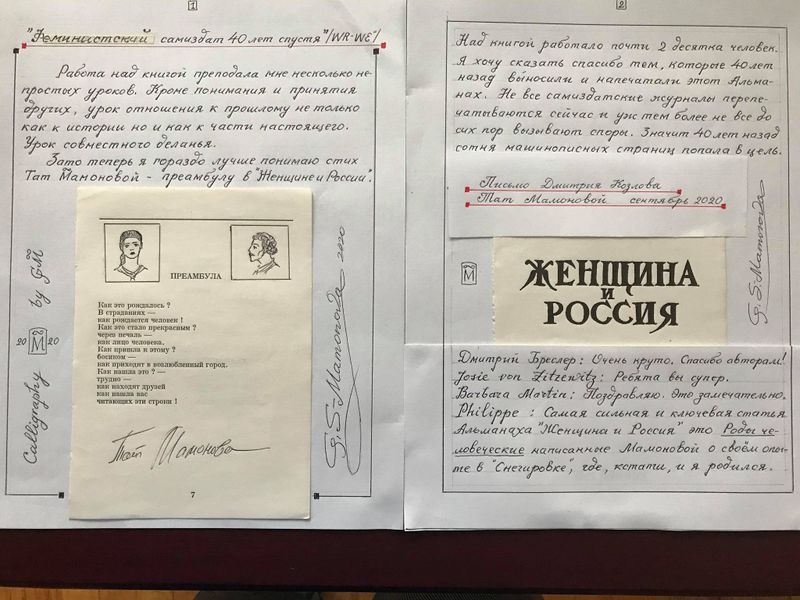 1
"Феминистский самиздат 40 лет спустя"/WR-WE/
Работа над книгой преподала мне несколько не-
простых уроков. Кроме понимания и принятия
других, урок отношения к прошлому не только
как к истории но и как к части настоящего.
Урок совместного деланья.
Зато теперь я гораздо лучше понимаю стих
Тат Мамоновой - преамбулу в "Женщине и России".
ПРЕАМБУЛА
Как это рождалось ?
В страданиях —
как рождается человек !
Как это стало прекрасным ?
через печаль —
как лицо человека.
Как пришла к этому ?
босиком —
как приходят в возлюбленный город.
Как нашла это ? —
трудно —
как находят друзей
как нашла вас
читающих эти строки !
Тат Мамонова
7
Calligraphy by GM
20 M 20
G.S-Mamonoda 2020
2
Над книгой работало почти 2 десятка человек.
Я хочу сказать спасибо тем, которые 40 лет
назад выносили и напечатали этот Альма-
нах. Не все самиздатские журналы перепе-
чатываются сейчас и уж тем более не все до
сих пор вызывают споры. Значит 40 лет назад
сотня машинописных страниц попала в цель.
Письмо Дмитрия Козлова
Тат Мамоновой сентябрь 2020
M
ЖЕНЩИНА
И
РОССИЯ
G.S-Mamonoda
Дмитрий Бреслер: Очень круто. Спасибо авторам!
Josie von Zitzewitz: Ребята вы супер.
Barbara Martin: Поздравляю. Это замечательно.
Philippe : Самая сильная и ключевая статья
Альманаха "Женщина и Россия" это Роды че-
ловеческие написанные Мамоновой о своём опы-
те в "Снегировке", где, кстати, и я родился.